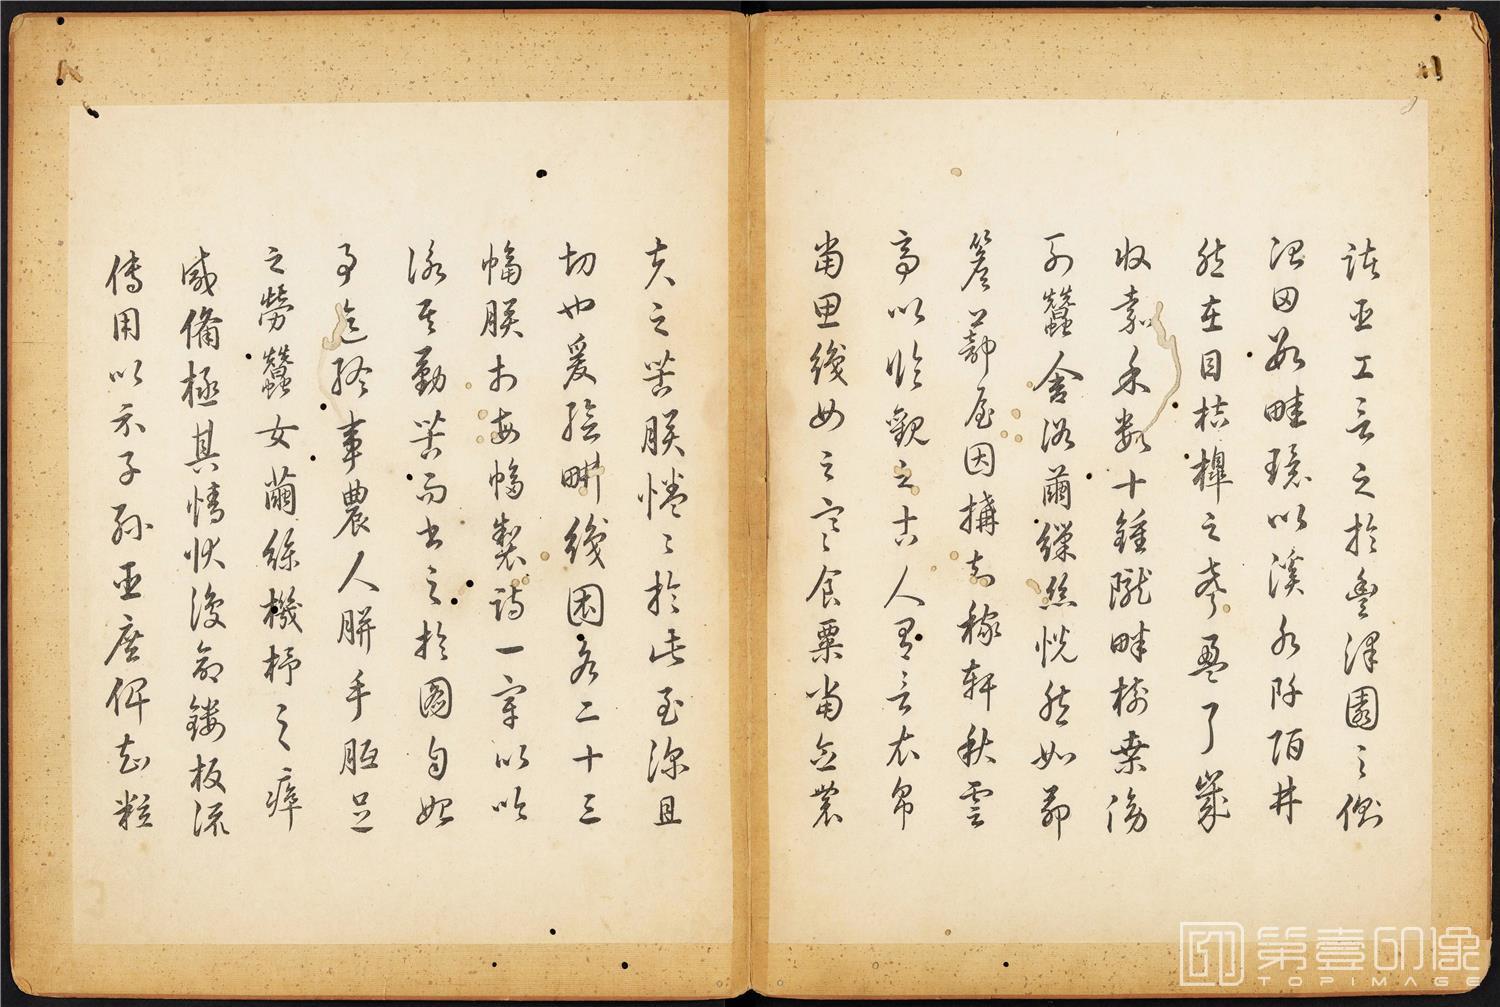 諸臣工言之於豐澤園之側
治田數畦環以溪水阡陌井
然在目桔槔之聲盈耳歲
收嘉禾數十鍾隴畔樹桒傍
列蠶舍浴繭繅絲恍然如茆
簷蔀屋因搆知稼軒秋雲
亭以臨觀之古人有言衣帛
當思織女之寒食粟當念農
夫之苦朕惓〻於此至深且
切也爰繪畊織圖各二十三
幅朕於每幅製詩一章以吟
詠其勤苦而書之於圖自始
事迄終事農人胼手胝足
之勞蠶女繭絲機杼之瘁
咸備極其情狀復命鏤板流
傳用以示子孫臣庶俾知粒
第壹印像
TOPIMAGE